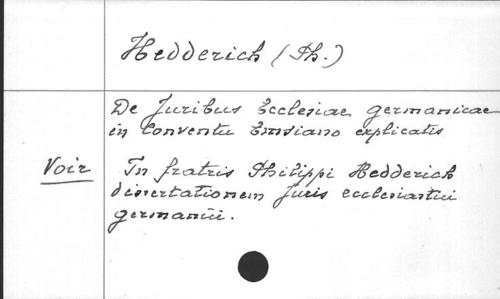 Hedderich (Ph.)
De Juribus Ecclesiae germanicae
in Conventu Emsiano explicatis
Voir In fratris Philippi Hedderich
dissertationem Juris ecclesiastici
germanici.